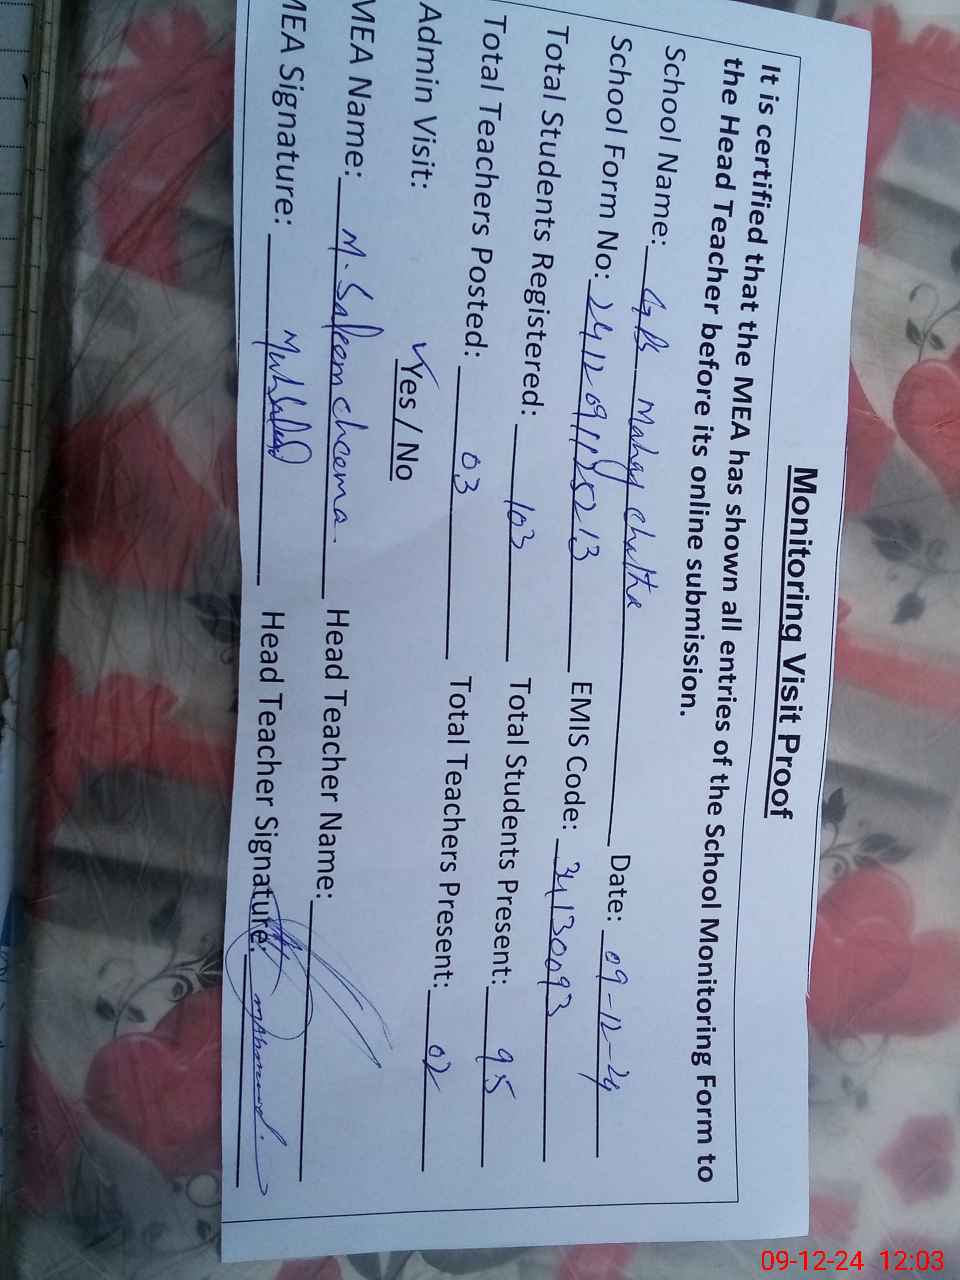 Monitoring Visit Proof
It is certified that the MEA has shown all entries of the School Monitoring Form to
the Head Teacher before its online submission.
School Name: Chatha Date: 09-12-24
School Form No: EMIS Code: 34130093
Total Students Registered: 103 Total Students Present: 95
Total Teachers Posted: 03 Total Teachers Present: 02
Admin Visit: Yes / No
MEA Name: M. Saleem cheema. Head Teacher Name:
MEA Signature: Head Teacher Signature:
09-12-24 12:03